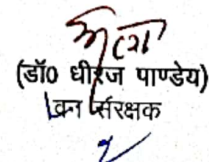 (डॉ0 धीरज पाण्डेय)
वन संरक्षक